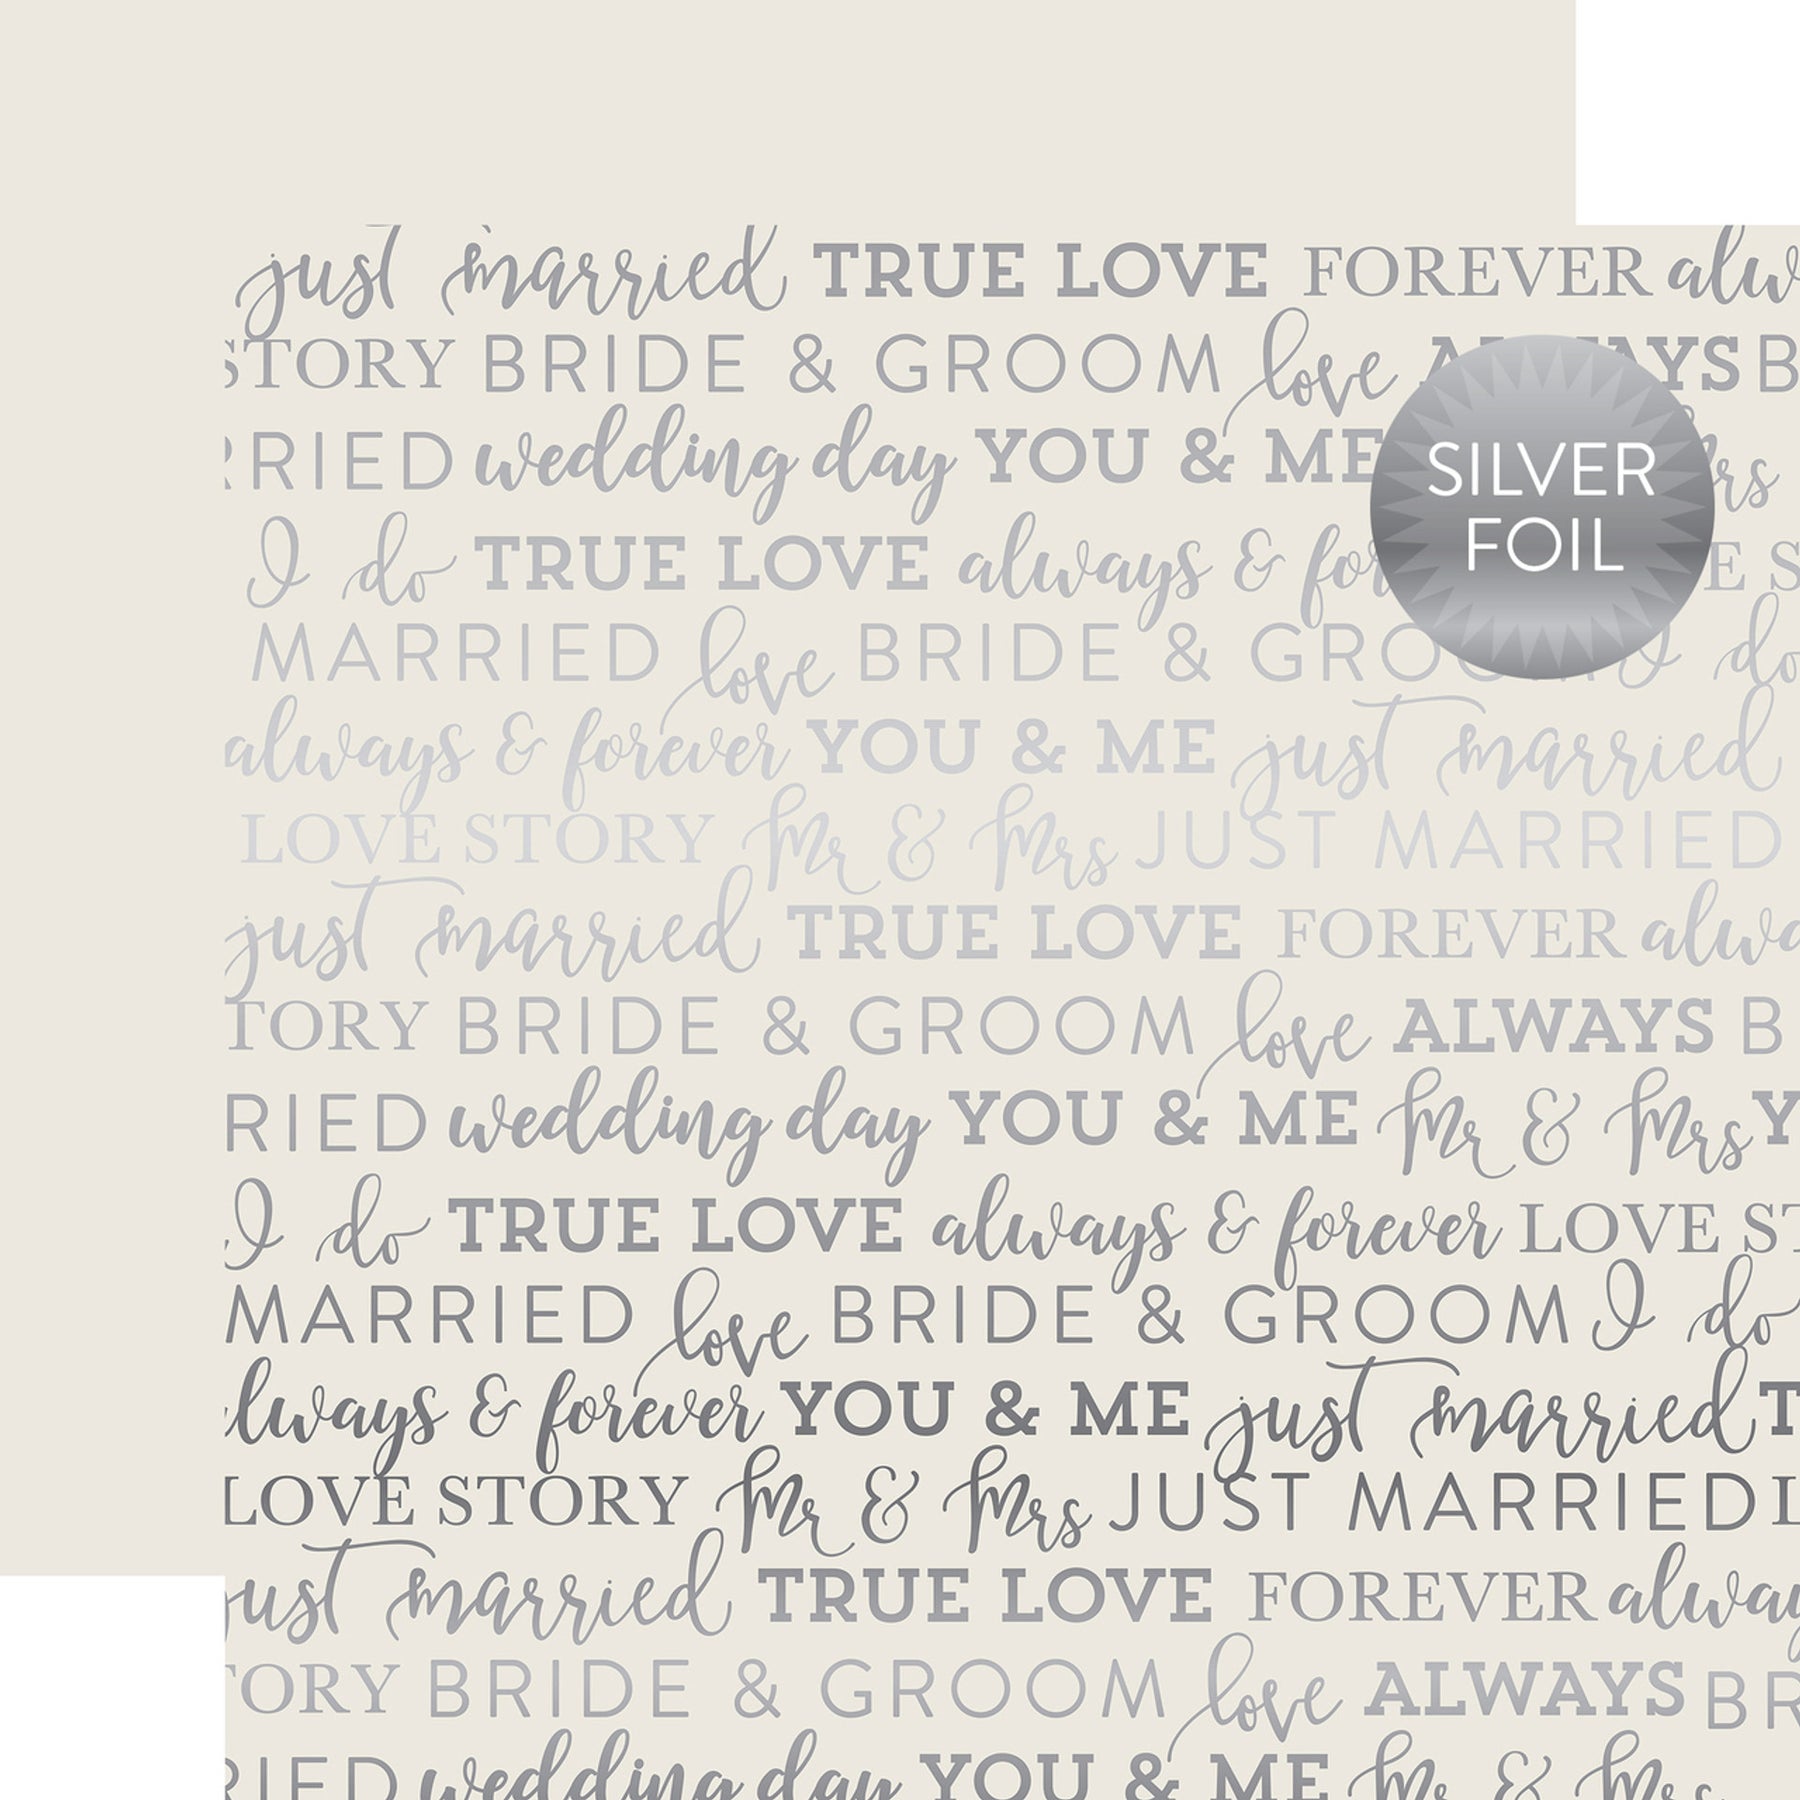 just married TRUE LOVE FOREVER alw
STORY BRIDE & GROOM love ALWAYS B
RRIED wedding day YOU & ME Mrs
SILVER
FOIL
I do TRUE LOVE always & for E S
MARRIED love BRIDE & GROOM I do
always & forever YOU & ME just married
LOVE STORY Mr & Mrs JUST MARRIED
just married TRUE LOVE FOREVER alwa
TORY BRIDE & GROOM love ALWAYS B
RIED wedding day YOU & ME Mr & Mrs Y
I do TRUE LOVE always & forever LOVE ST
MARRIED love BRIDE & GROOM I do
lways & forever YOU & ME just married T
LOVE STORY Mr & Mrs JUST MARRIED L
just married TRUE LOVE FOREVER always
TORY BRIDE & GROOM love ALWAYS BR
RIED wedding day YOU & ME Mr & Mrs